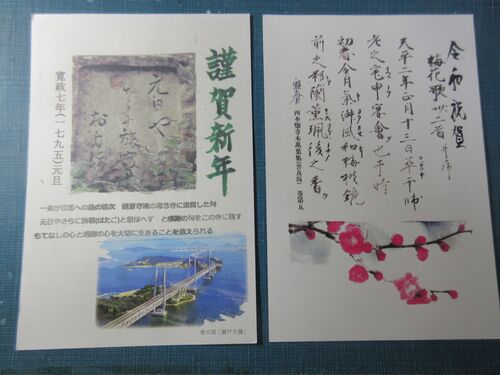 謹賀新年
元日や
さらに旅宿と
おもほへず
寛政七年(一七九五)元旦
一茶が四国への旅の途次 観音寺港の専念寺に逗留した時
元日やさらに旅宿(はたご)と思ほへず と感謝の句をこの寺に残す
もてなしの心と感謝の心を大切に生きることを教えられる
香川県「瀬戸大橋」
令和祝賀
梅花歌卅二首 并序
天平二年正月十三日萃于帥
老之宅申宴會也于時
初春令月氣淑風和梅披鏡
前之粉蘭薫珮後之香
西本願寺本萬葉集(普及版) 巻第五